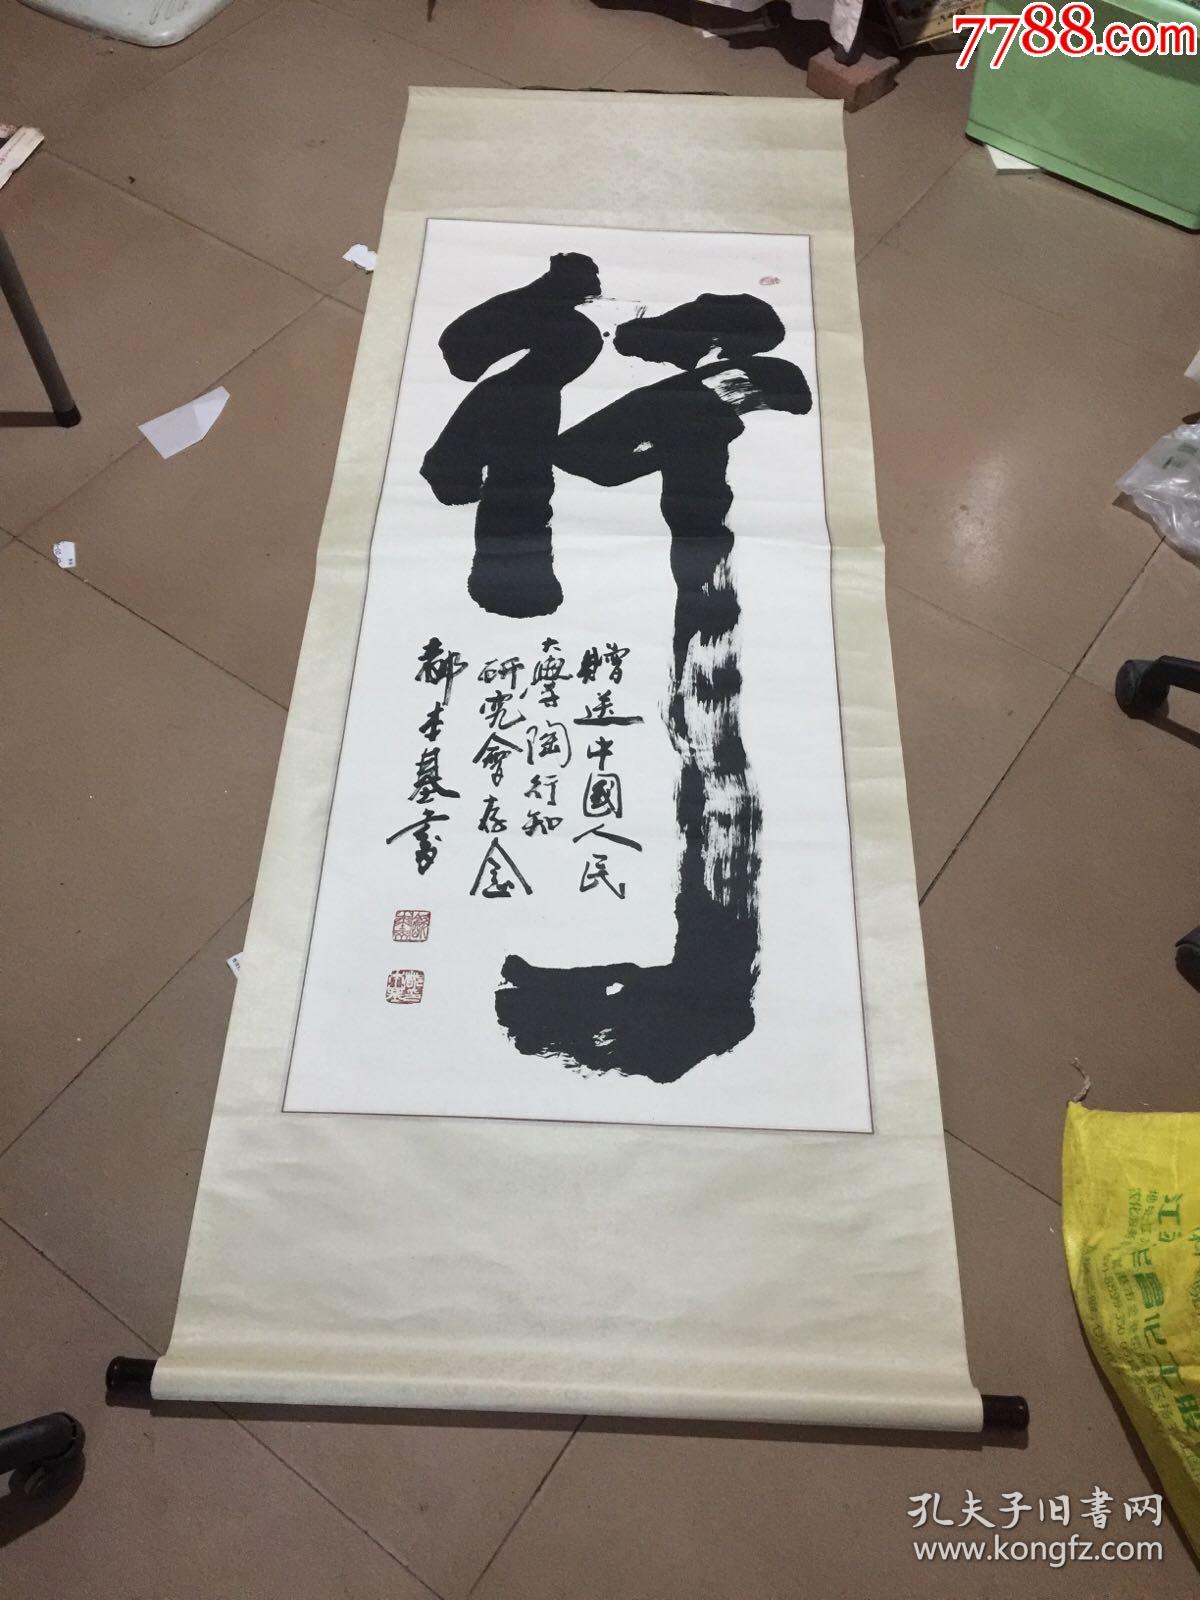 7788.com
行
贈送中國人民
大學陶行知
研究會存念
都本基書
孔夫子旧书网
www.kongfz.com